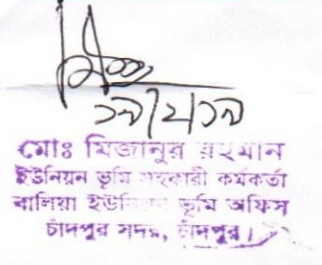 ১৯/২/১৯
মোঃ মিজানুর রহমান
ইউনিয়ন ভূমি সহকারী কর্মকর্তা
বালিয়া ইউনিয়ন ভূমি অফিস
চাঁদপুর সদর, চাঁদপুর।